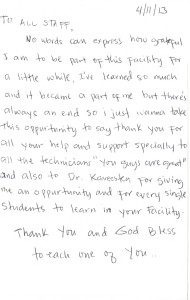 4/11/13
TO ALL STAFF,
No words can express how grateful
I am to be part of this Facility For
a little while, I've learned so much
and it became a part of me but there's
always an end so i just wanna take
this opportunity to say thank you For
all your help and support specially to
all the technicians "You guys are great"
and also to Dr. Kaveesten For giving
me an opportunity and For every single
Students to learn in your facility.
Thank You and God Bless
to each one of You..